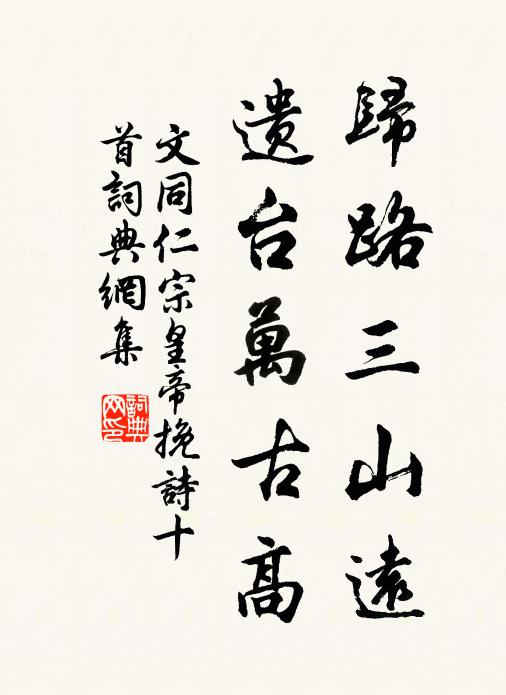 歸路三山遠
遺台萬古高
文同仁宗皇帝挽詩十
首詞典網集
詞典
网印